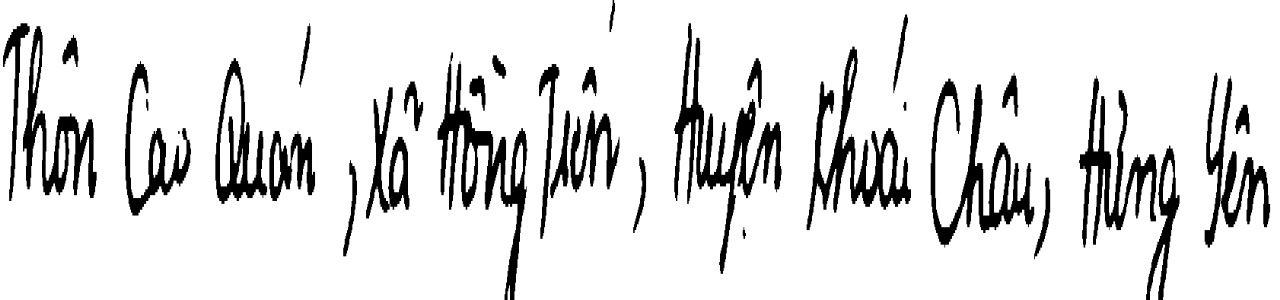 Thôn Cao Quán, Xã Hồng Tiến, Huyện Khoái Châu, Hưng Yên